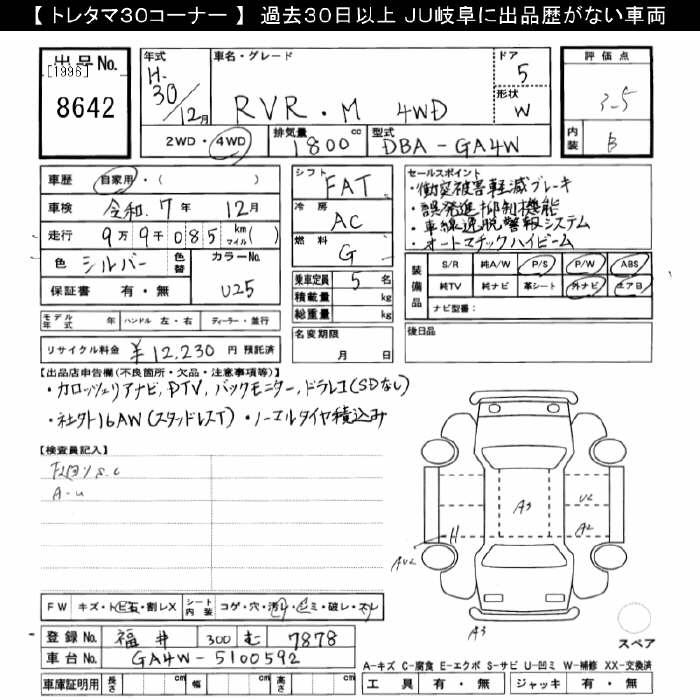 【 トレタマ30コーナー 】 過去30日以上 JU岐阜に出品歴がない車両
出品No.
[1996]
8642
年式
H.
30
12月
車名・グレード
RVR・M 4WD
ドア
5
形状
W
評価点
3-5
内装
B
2WD・4WD
排気量
1800 cc
型式
DBA-GA4W
車歴 自家用・( )
車検 令和.7年 12月
走行 9万9千085 km マイル( )
色 シルバー
色替
カラーNo.
U25
保証書 有・無
シフト FAT
冷房 AC
燃料 G
乗車定員 5 名
積載量 kg
総重量 kg
セールスポイント
・衝突被害軽減ブレーキ
・誤発進抑制機能
・車線逸脱警報システム
・オートマチックハイビーム
装備品
S/R 純A/W P/S P/W ABS
純TV 純ナビ 革シート 外ナビ エアB
ナビ型番:
モデル年式 年 ハンドル 左・右 ディーラー・並行
名変期限
月 日
後日品
リサイクル料金 ¥12,230 円 預託済
【出品店申告欄(不良箇所・欠品・注意事項等)】
・カロッツェリアナビ, DTV, バックモニター, ドラレコ(SDなし)
・社外16AW(スタッドレスT)・ノーマルタイヤ積込み
【検査員記入】
A-u
A3
U2
A2
H
A3
FW キズ・トビ石・割レX
シート内装 コゲ・穴・汚レ・シミ・破レ・スレ
登録No. 福井 300 む 7878
車台No. GA4W-5100592
車庫証明用 長さ cm 幅 cm 高さ cm
スペア
A-キズ C-腐食 E-エクボ S-サビ U-凹ミ W-補修 XX-交換済
工具 有・無 ジャッキ 有・無